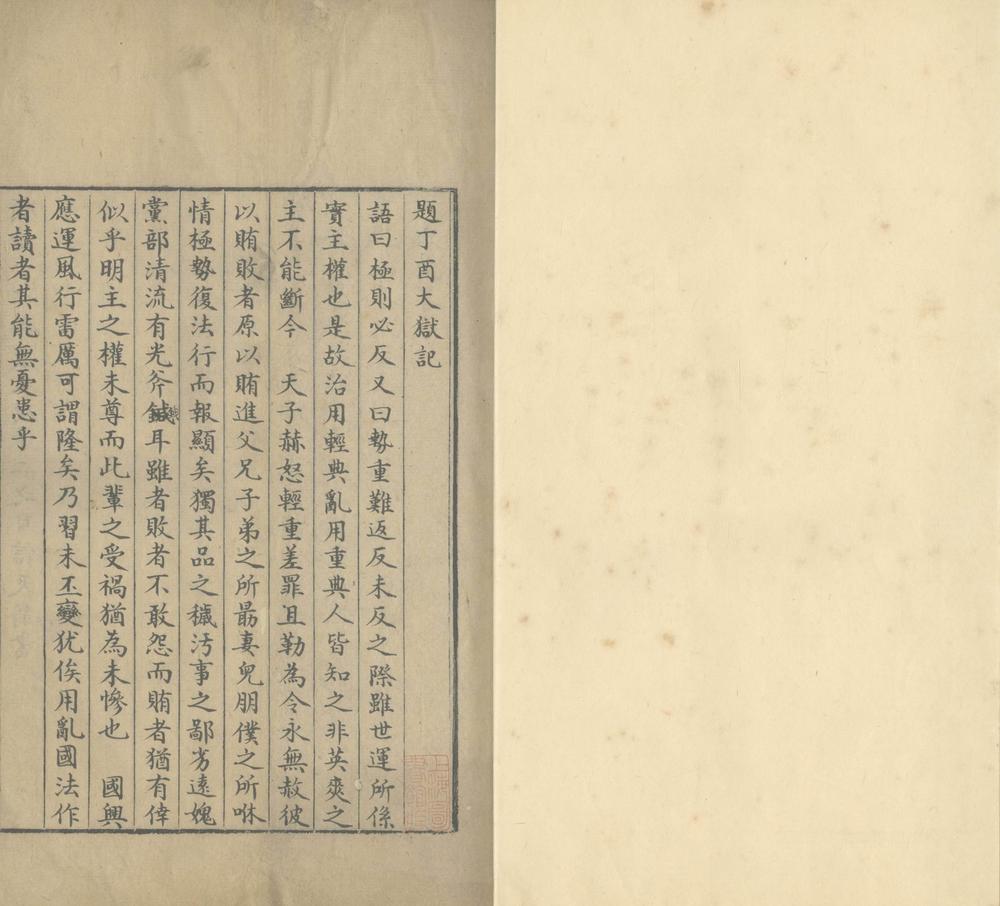 題丁酉大獄記
語曰極則必反又曰勢重難返反未反之際雖世運所係
實主權也是故治用輕典亂用重典人皆知之非英爽之
主不能斷今　天子赫怒輕重差罪且勒為令永無赦彼
以賄敗者原以賄進父兄子弟之所最妻兒朋僕之所咻
情極勢復法行而報顯矣獨其品之穢汚事之鄙劣遠媿
黨部清流有光斧鋮耳雖者敗者不敢怨而賄者猶有倖
似乎明主之權未尊而此輩之受禍猶為未慘也　國興
應運風行雷厲可謂隆矣乃習未丕變犹俟用亂國法作
者讀者其能無憂患乎
上海圖書館藏